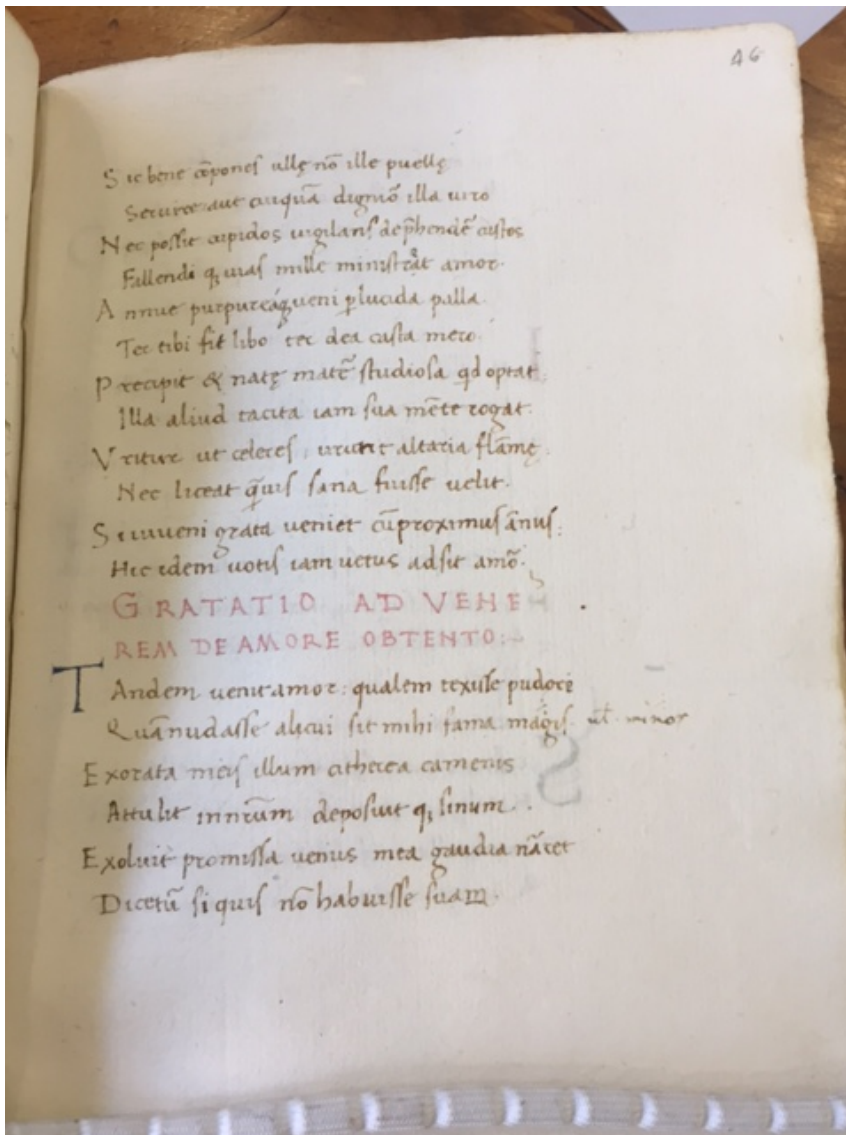 46
Sic bene cōpones ullę nō ille puellę
Servire aut cuiquā dignio᷑ illa viro
Nec possit cupidos vigilans dep̄hendē custos
Fallendi q; vias mille ministrat amor.
Annue purpureáq; veni p̱lucida palla.
Ter tibi fit libo ter dea casta mero.
Precipit & natę matē studiosa qd optat:
Illa aliud tacita iam sua mēte rogat.
Uritur ut celeres uruntur altaria flāmę.
Nec liceat q̄mvis sana fuisse velit.
Si iuveni grata veniet cū proximus ānus:
Hic idem votis iam vetus adsit amo᷑.
GRATATIO AD VENE
REM DE AMORE OBTENTO:
TAndem venit amor: qualem texisse pudore
Quā nudasse alicui sit mihi fama magis. ul̄. minor
Exorata meis illum citherea camenis
Attulit innr̄um deposuit q; sinum.
Exoluit promissa venus mea gaudia nārет
Dicetu᷑ si quis nō habuisse suam.